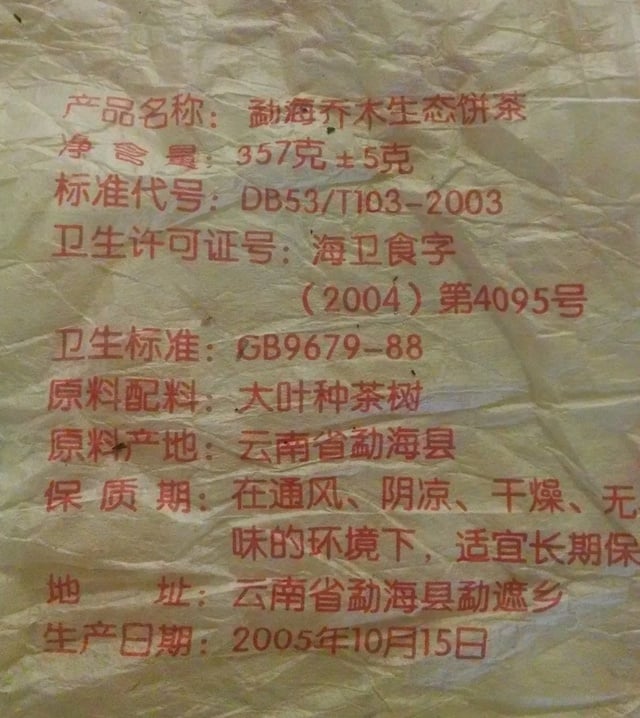 产品名称：勐海乔木生态饼茶
净含量：357克±5克
标准代号：DB53/T103-2003
卫生许可证号：海卫食字
（2004）第4095号
卫生标准：GB9679-88
原料配料：大叶种茶树
原料产地：云南省勐海县
保质期：在通风、阴凉、干燥、无
味的环境下，适宜长期保
地址：云南省勐海县勐遮乡
生产日期：2005年10月15日